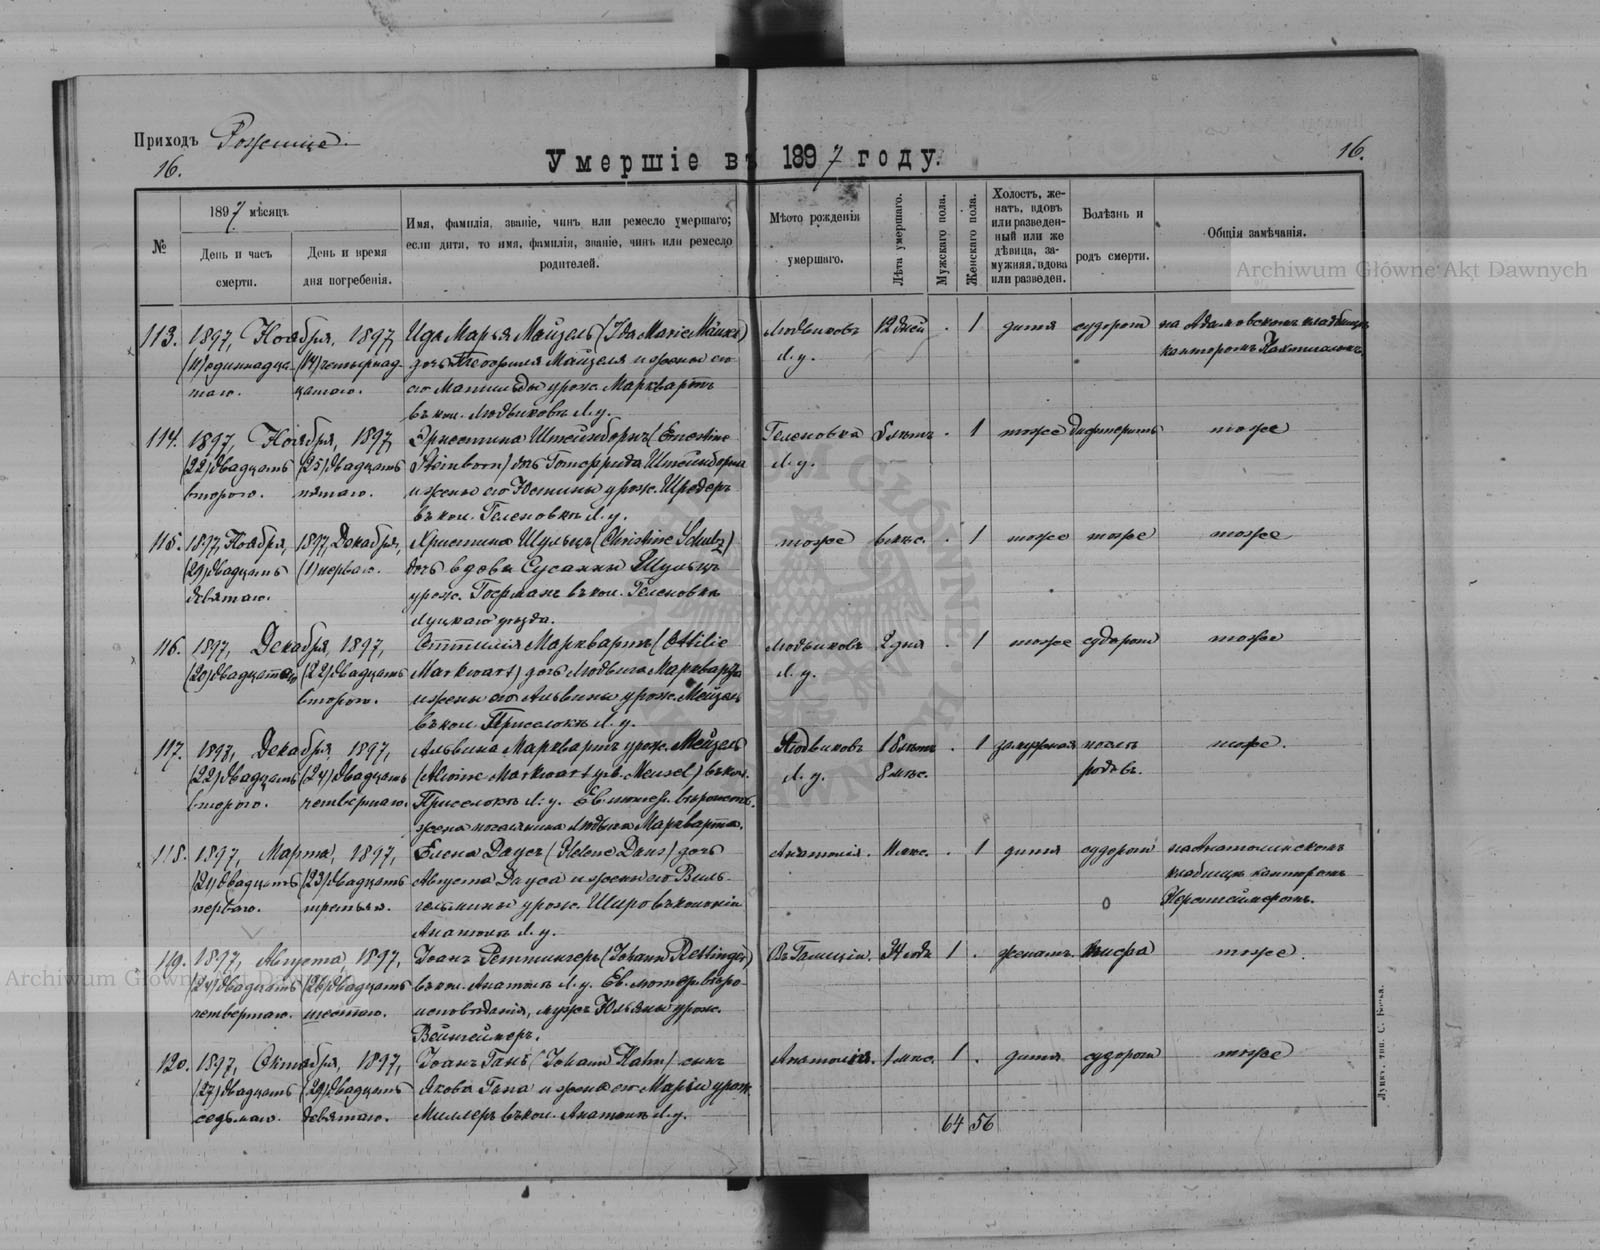 Приходъ Роженще.
16.
Умершіе въ 1897 году.
16.
№
1897 мѣсяцъ
День и часъ смерти.
День и время дня погребенія.
Имя, фамилія, званіе, чинъ или ремесло умершаго;
если дитя, то имя, фамилія, званіе, чинъ или ремесло
родителей.
Мѣсто рожденія
умершаго.
Лѣта умершаго.
Мужскаго пола.
Женскаго пола.
Холостъ, же-
натъ, вдовъ
или разведен-
ный или же
дѣвица, за-
мужняя, вдова
или разведен.
Болѣзнь и
родъ смерти.
Общія замѣчанія.
Archiwum Główne Akt Dawnych
113. 1897, Ноября, 1897, Ида Марья Майзель (Ida Marie Mäusel) Людвиковъ 12 дней . 1 дитя судорог на Адамовскомъ кладбищѣ
(11) одиннадца- (14) четырнад- дочь Теофиля Майзеля и жены его Л. у. канторомъ
таго. цатаго. его Матильды урож. Марквартъ
въ кол. Людвиковъ Л. у.
114. 1897, Ноября, 1897, Эрнестина Штейнборнъ (Ernestine Геленовка 8 лѣтъ . 1 тоже дифтеритъ тоже
(22) двадцать (25) двадцать Steinborn) дочь Готфрида Штейнборна Л. у.
второго. пятаго. и жены его Юстины урож. Шредеръ
въ кол. Геленовкѣ Л. у.
115. 1897, Ноября, 1897, Декабря, Христина Шульцъ (Christine Schulz) тоже 6 мѣс. . 1 тоже тоже тоже
(29) двадцать (1) перваго. дочь вдовы Сусанны Шульцъ
девятаго. урож. Гофманъ въ кол. Геленовкѣ
Луцкаго уезда.
116. 1897, Декабря, 1897, Оттилія Марквартъ (Ottilie Людвиковъ 2 дня . 1 тоже судорог тоже
(20) двадцатаго (22) двадцать Markwart) дочь Людвига Маркварта Л. у.
второго. и жены его Альвины урож. Мейзель
въ кол. Приселокъ Л. у.
117. 1897, Декабря, 1897, Альвина Марквартъ урож. Мейзель Людвиковъ 18 лѣтъ . 1 замужная послѣ тоже.
(22) двадцать (24) двадцать (Alwine Markwart geb. Meusel) въ кол. Л. у. 8 мѣс. родовъ.
второго. четвертаго. Приселокъ Л. у. Ев. лютер. вѣроисп.
жена поселянина Людвига Маркварта.
118. 1897, Марта, 1897, Елена Даусъ (Helene Daus) дочь Анатолія. 11 мѣс. . 1 дитя судорог на Анатолинскомъ
(21) двадцать (23) двадцать Августа Дауса и жены его Виль- кладбищѣ канторомъ
перваго. третьяго. гельмины урож. Широ въ колоніи
Анатолія Л. у.
119. 1897, Августа, 1897, Іоанъ Реттингеръ (Johann Rettinger) Въ Галиціи. 34 года 1 . женатъ. тоже.
(24) двадцать (26) двадцать въ кол. Анатолія Л. у. Ев. лютер. вѣро-
четвертаго. шестаго. исповѣданія, мужъ Юльяны урож.
Вейнгеймеръ.
120. 1897, Октября, 1897, Іоанъ Ганъ (Johann Hahn) сынъ Анатолія. 1 мѣс. 1 . дитя судорог тоже
(27) двадцать (29) двадцать Якова Гана и жены его Марьи урож.
седьмаго. девятаго. Миллеръ въ кол. Анатолія Л. у.
64 56
Archiwum Główne Akt Dawnych